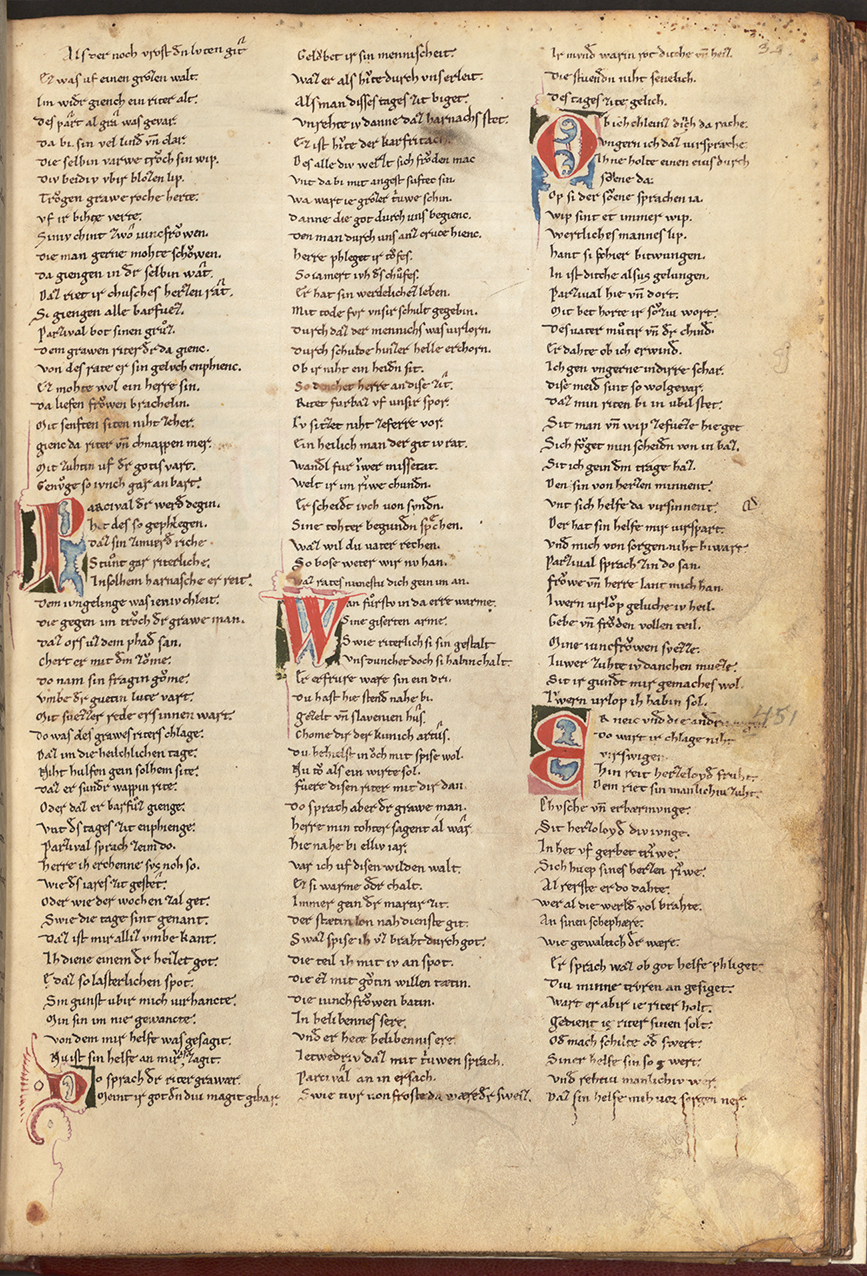 Als der noch vrost dñ luten git
Er was uf einen grozen walt.
Im widr giench ein riter alt.
Des part al gra was gevar.
Da bi sin vel lind vñ clar.
Die selbin varwe troch sin wip.
Div beidiv vbir blozen lip.
Trogen grawe roche herte.
vf ir bihte verte.
Siniv chint zwo iuncfrowen.
Die man gerne mohte schowen.
Da giengen in dr selbin wat.
Daz riet ir chusches herzen rat.
Si giengen alle barfuez.
Parzival bot sinen gruz.
Dem grawen riter dr da gienc.
von des rate er sin geluch enphienc.
Ez mohte wol ein herre sin.
Da liefen frowen brachelin.
Mit senften siten niht zcher.
gienc da riter vñ chnappen mer.
Mit zuhtin uf dr gotis vart.
Genuge so ivnch gar an bart.
Parcival dr werd degin.
het des so gephlegen.
Daz sin zimierd riche.
Stunt gar riterliche.
In solhem harnasche er reit.
Dem ivngelinge was ieniv chleit.
Die gegen im troch dr grawe man.
Daz ors uz dem phad san.
chert er mit dm zome.
Do nam sin fragin gome.
vmbe dr guetin lute vart.
Mit suezzer rede ers innen wart.
Do was des grawes riters chlage.
Daz im die heilchlichen tage.
Niht hulfen gein solhem site.
Daz er sundr wappin rite.
Oder daz er barfuz gienge.
vnt ds tages zit enphienge.
Parzival sprach zeim do.
Herre ih erchenne sus noh so.
Wie ds iares zit gestet.
Oder wie der wochen zal get.
Swie die tage sint genant.
Daz ist mir alliz vmbe kant.
Ih diene einem dr heizet got.
E daz so lasterlichen spot.
Sin gunst ubir mich virhancte.
Min sin im nie gewancte.
von dem mir helfe was gesagit.
Nu ist sin helfe an mir virzagit.
Do sprach dr riter grawer.
Meint ir got dñ diu magit gibar.
Geloubet ir sin mennischeit.
Waz er als hute durch vns erleit.
Als man disses tages zit biget.
Vnrehte iv danne daz harnachs stet.
Ez ist hute der karfritach.
Des alle div werlt sich froden mac
Vnt da bi mit angest suftec sin.
Wa wart ie grozer truwe schin.
Danne die got durch uns begienc.
Den man durch vns anz cruce hienc.
Herre phleget ir tofes.
So iamert ivh ds chufes.
Er hat sin werdelichez leben.
Mit tode fur vnsir schult gegebin.
Durch daz der mennichs was virlorn.
Durch schulde hin zer helle erchorn.
Ob ir niht ein heidn sit.
So denchet herre an dise zit.
Ritet furbaz vf unsir spor.
Iv sitzet niht zeferre vor.
Ein heilich man der git iv rat.
Wandl fur iwer missetat.
Welt ir im riwe chundn.
Er scheidt ivch von syndn.
Sine tohter begundn sprechen.
Waz wil du vater rechen.
So bose weter wir nv han.
waz rates nimestu dich gein im an.
Wan furstv in da erre warme.
Sine giserten arme.
Swie riterlich si sin gestalt
Vns dunchet doch si habin chalt.
Er erfrure ware sin ein dri.
Du hast hie stend nahe bi.
gezelt vñ slavenien hus.
Chome dir der kunich artus.
Du behielst in och mit spise wol.
Nu to als ein wirte sol.
Fuere disen riter mit dir dan.
Do sprach aber dr grawe man.
Herre min tohter sagent al war.
Hie nahe bi elliv iar.
Var ich uf disen wilden walt.
Ez si warme odr chalt.
Immer gein dr martir zit.
Der stætin lon nah dienste git.
Swaz spise ih uz braht durch got.
Die teil ih mit iv an spot.
Die ez mit gotin willen tætin.
Die iunchfrowen batin.
In belibennes sere.
Vnd er hete belibennis ere.
Ietwedriv daz mit truwen sprach.
Parcival an in ersach.
Swie tiur von froste da wære dr sweiz.
Ir mvnd warin rot diche vñ heiz.
Die stuendn niht senelich.
Des tages zite gelich.
Ob ich chleinz dich da rache.
Vngern ich daz virsprache
Ihne holte einen cius durch
sone da.
Op si der sone sprachen ia.
Wip sint et immer wip.
Wertliches mannes lip.
Hant si schier bitwungen.
In ist diche alsus gelungen.
Parzival hie vñ dort.
Mit bet horte ir sozziv wort.
Des vater mutir vñ dr chind.
Er dahte ob ich erwind.
Ich gen vngerne in dirre schar.
Dise meid sint so wolgevar.
Daz min riten bi in ubil stet.
Sit man vñ wip zefueze hie get
Sich foget min scheidn von in baz.
Sit ich gein dm trage haz.
Den sin von herzen minnent.
Vnt sich helfe da virsinnent.
Der hat sin helfe mir virspart.
Vnd mich von sorgen niht biwart.
Parzival sprach zin do san.
Frowe vñ herre lant mich han.
Iwern urlop geluche iv heil.
Gebe vñ froden vollen teil.
Mine iuncfrowen suezze.
Iuwer zuhte iv danchen mueze.
Sit ir gundt mir gemaches wol.
Iwern urlop ih habin sol.
Er neic vnd die andern
Do wart ir chlage niht
virswigen
Hin reit herzeloyd fruht.
Dem riet sin manlichiu zuht.
Chusche vñ erbærmunge.
Sit herzoloyd div ivnge.
In het uf gerbet triwe.
Sich huep sines herzen riwe.
Al rerste er do dahte.
Wer al die werld vol brahte.
An sinen schephære.
Wie gewaltich dr wære.
Er sprach waz ob got helfe phliget
Diu minne truren an gesiget.
Wart er abir ie riter holt.
Gedient ie riter sinen solt.
Od mach schilte od swert.
Siner helfe sin so wert.
Vnd rehtiu manlichiv wer
Daz sin helfe mih vor sorgen ner.
451